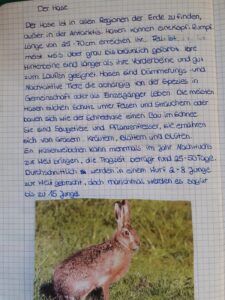 Der Hase
Der Hase ist in allen Regionen der Erde zu finden,
außer in der Antarktis. Hasen können eine Kopf-Rumpf
länge von 25-70cm erreichen. Ihr Fell ist
meist weiß über grau bis bräunlich gefärbt. Ihre
Hinterbeine sind länger als ihre Vorderbeine und gut
zum Laufen geeignet. Hasen sind Dämmerungs- und
Nachtaktive Tiere die abhängig von der Spezies in
Gemeinschaft oder als Einzelgänger leben. Die meisten
Hasen suchen Schutz unter Felsen und Sträuchern oder
bauen sich wie der Schneehase einen Bau im Schnee.
Sie sind Säugetiere und Pflanzenfresser, sie ernähren
sich von Gräsern, Kräutern, Blättern und Blüten.
Ein Hasenweibchen kann mehrmals im Jahr Nachwuchs
zur Welt bringen, die Tragzeit beträgt rund 25-50 Tage.
Durchschnittlich werden in einem Wurf 2-8 Junge
zur Welt gebracht, doch manchmal werden es sogar
bis zu 15 Junge.